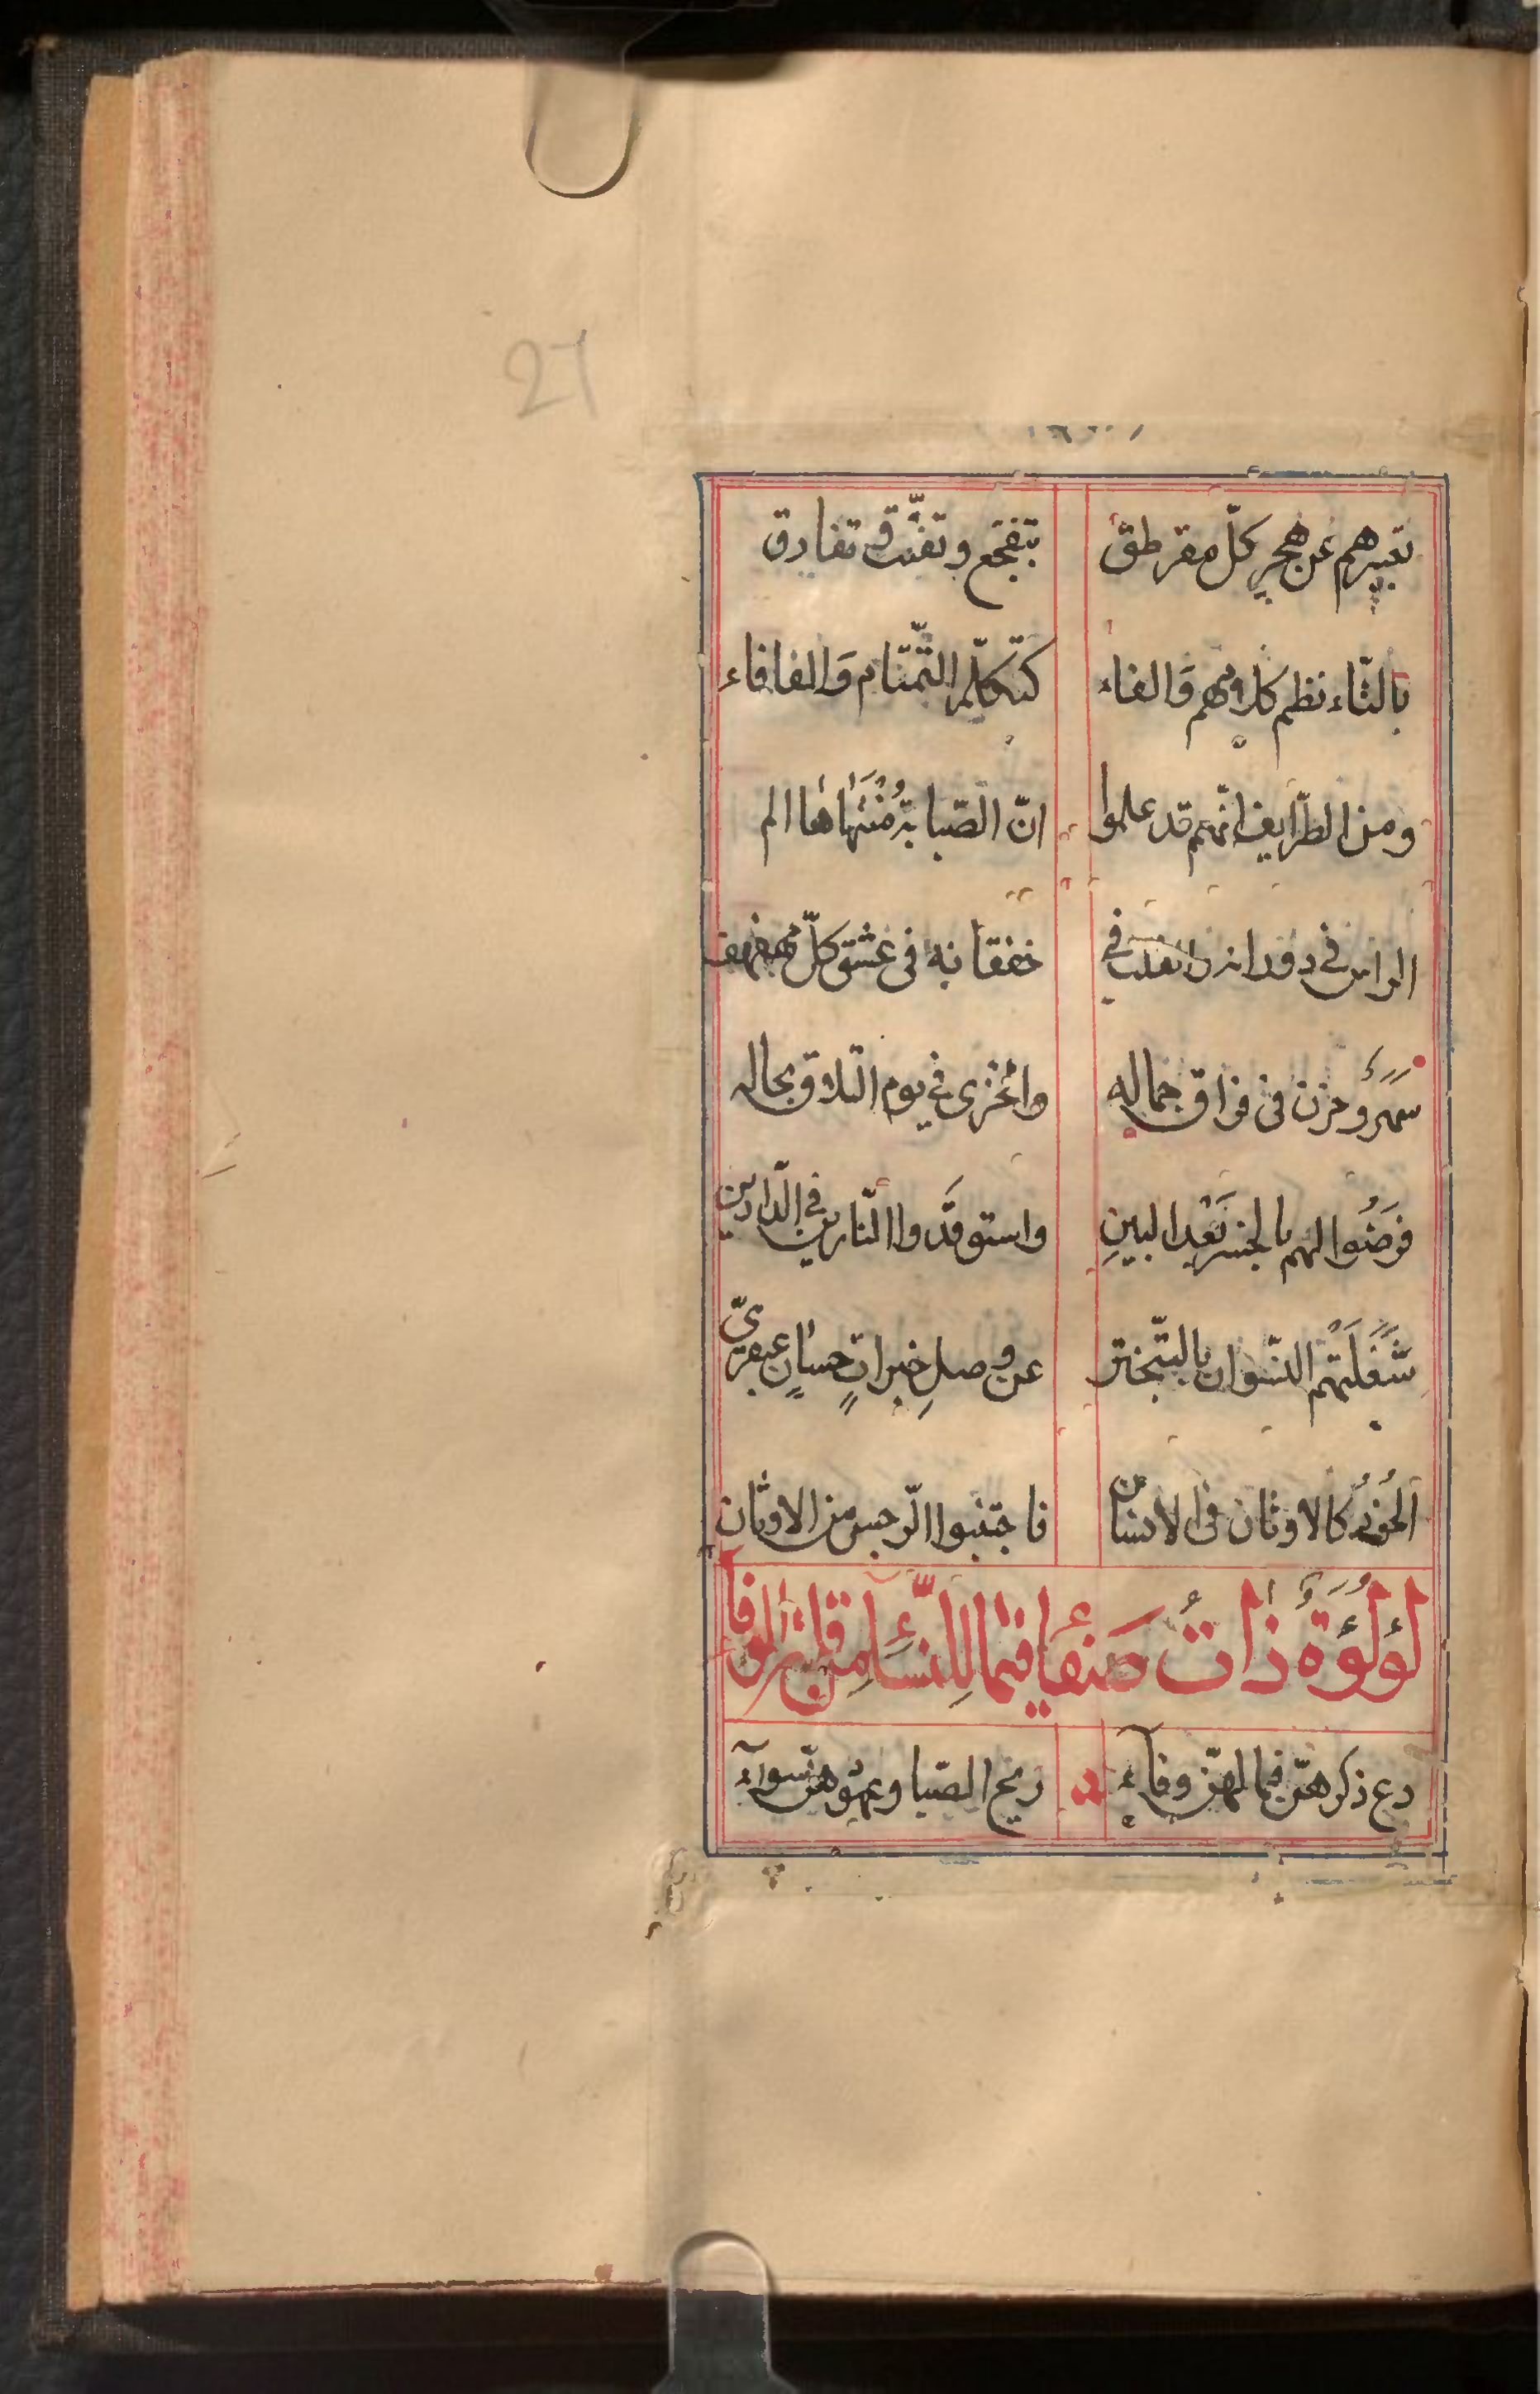 27
تعبيرهم عن هجر كلّ مقرطق بتفجّع وتفتّق تفارق
بالتّاء نظم كلامهم وَالفاء كتكلّم التّمتام وَالفافاء
ومن الطّرايف انّهم قد علموا انّ الصّبابة مُنتهاها الم
الراس في دورانه والقلب في خفقانه في عشق كلّ مهفهف
سهر وحزن في فراق جماله والخزى في يوم التلاق بحاله
فرَضُوا لهم بالجسر بَعْد البينِ واستوقَدوا النّارين في الدّارين
شَغَلَتهم النّسوان بالتّبختر عن وصلِ خيراتٍ حسانٍ عبقريّ
الحُورُ كالاوثان في الانسان فاجتنبوا الرّجس من الاوثان
لؤلؤة ذاتُ صَفآء فيما للنّسآء من قلّة الوفآء
دع ذكرهنّ فما لهنّ وفآء ريح الصّبا وعهودهنّ سوآء